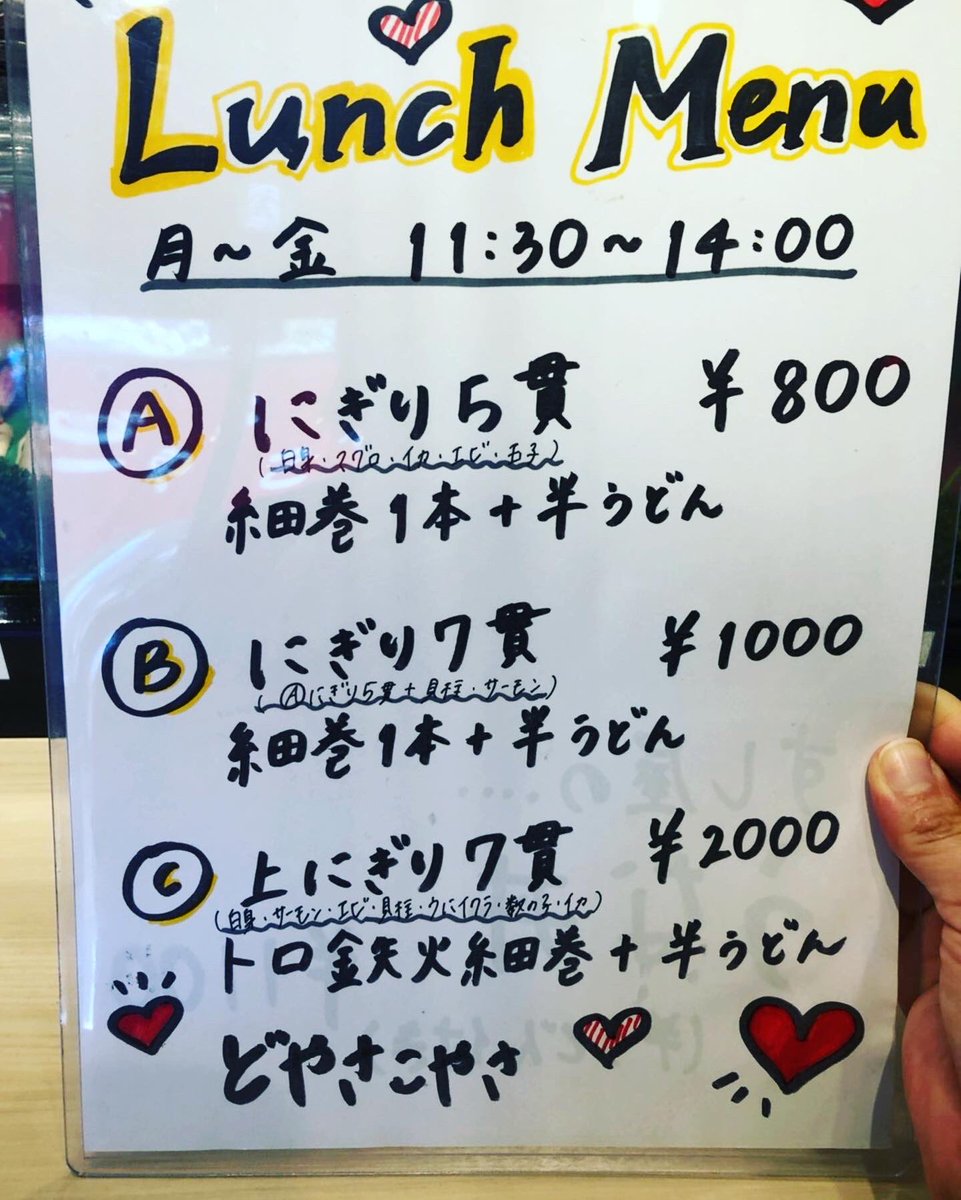 Lunch Menu
月～金 11:30～14:00
Ⓐ にぎり5貫 ¥800
(白身・マグロ・イカ・エビ・玉子)
細巻1本+半うどん
Ⓑ にぎり7貫 ¥1000
(Ⓐにぎり5貫+貝柱・サーモン)
細巻1本+半うどん
Ⓒ 上にぎり7貫 ¥2000
(白身・サーモン・エビ・貝柱・ウニイクラ・数の子・イカ)
トロ鉄火細巻+半うどん
どやさこやさ
すし屋の...